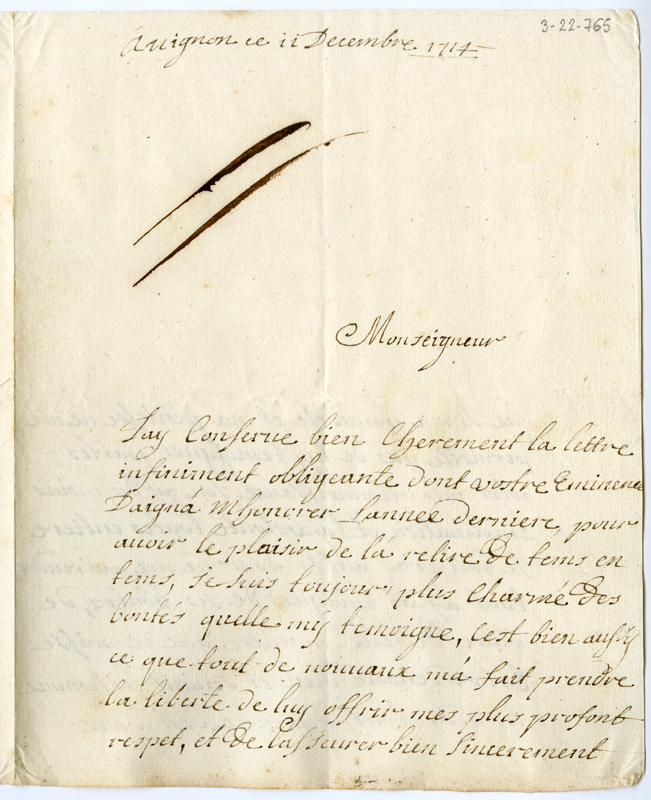 3-22-765
Avignon ce 11 Decembre 1714
Monseigneur
Jay Conserue bien Cherement la lettre
infiniment obligeante dont vostre Eminence
Daigna mhonorer Lannee derniere, pour
auoir le plaisir de la relire De tems en
tems, Je suis toujour plus Charmé des
bontés quelle my temoigne, Cest bien aussy
ce que tout de nouuaux má fait prendre
la liberte de luy offrir mes plus profont
respet, et De lasseurer bien Sincerement